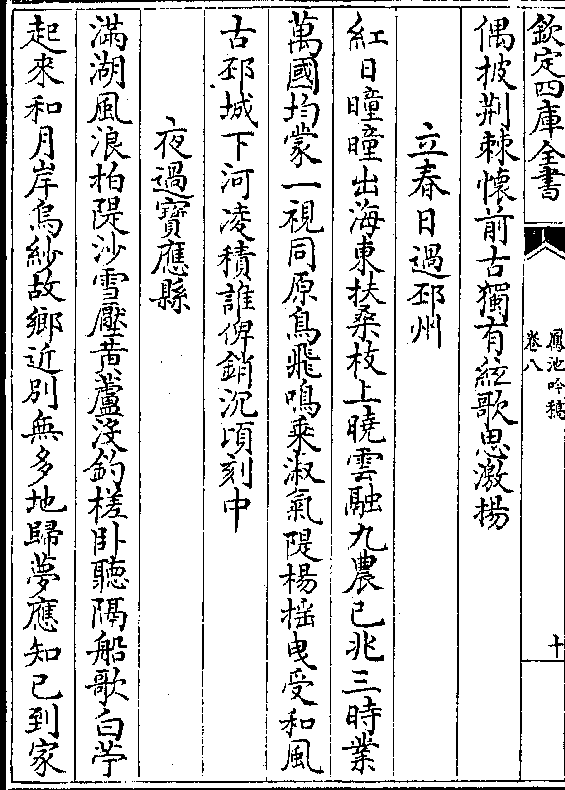 欽定四庫全書
鳳池吟稿
卷八
十
偶披荆棘懐前古獨有絃歌思激揚
立春日過邳州
紅日曈曈出海東扶桑枝上曉雲融九農已兆三時業
萬國均蒙一視同原鳥飛鳴乗淑氣隄楊揺曳受和風
古邳城下河凌積誰俾銷沉頃刻中
夜過寳應縣
滿湖風浪拍隄沙雪壓黄蘆沒釣槎卧聽隔船歌白苧
起來和月岸烏紗故鄉近別無多地歸夢應知已到家